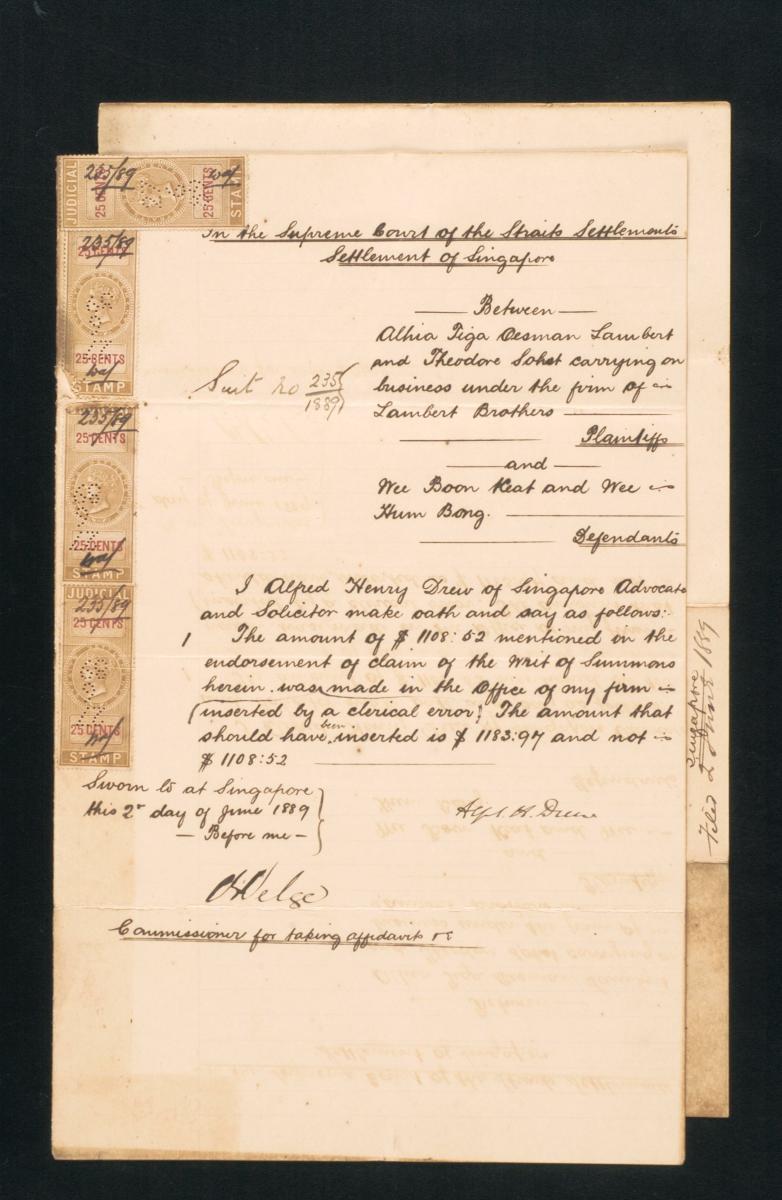 JUDICIAL 25 CENTS 235/89 25 CENTS STAMP
235/89
25 CENTS
25 CENTS
STAMP
235/89
25 CENTS
25 CENTS
STAMP
JUDICIAL
235/89
25 CENTS
25 CENTS
STAMP
In the Supreme Court of the Straits Settlements
Settlement of Singapore
Between
Athia Tiga Oesman Lambert
and Theodore Sohst carrying on
Suit no 235/1889
business under the firm of
Lambert Brothers
Plaintiffs
and
Wee Boon Keat and Wee
Hum Bong.
Defendants
I Alfred Henry Drew of Singapore Advocate
and Solicitor make oath and say as follows:-
1 The amount of $ 1108:52 mentioned in the
endorsement of claim of the Writ of Summons
herein was made in the Office of my firm
(inserted by a clerical error; The amount that
should have been inserted is $ 1183:97 and not
$ 1108:52
Sworn to at Singapore
this 2 day of June 1889
Before me
Alf. H. Drew
Commissioner for taking affidavits &c
Singapore
Filed 2 June 1889